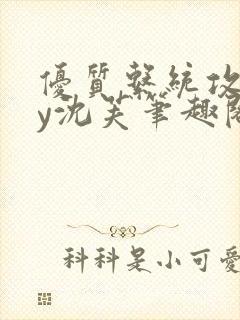 優質繫統攻
y沈芙筆趣閣
科科是小可愛